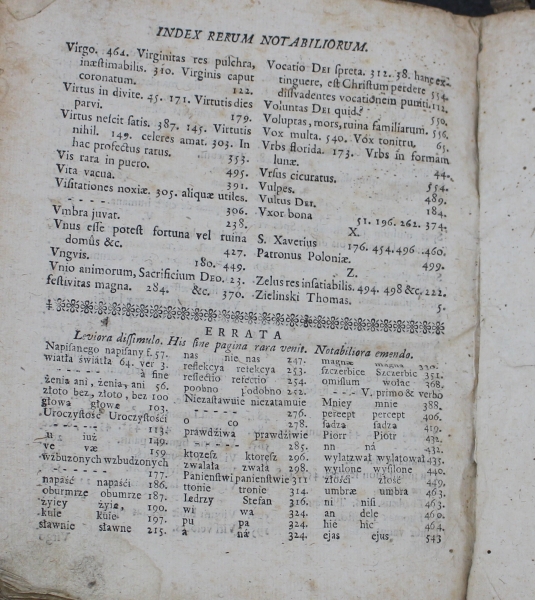 INDEX RERUM NOTABILIORUM.
Virgo. 464. Virginitas res pulchra,
inæstimabilis. 310. Virginis caput
coronatum. 122.
Virtus in divite. 45. 171. Virtutis dies
parvi. 179.
Virtus nescit satis. 387. 145. Virtutis
nihil. 149. celeres amat. 303. In
hac profectus ratus. 353.
Vis rara in puero. 495.
Vita vacua. 391.
Visitationes noxiæ. 305. aliquæ utiles.
- - - - - 306.
Vmbra juvat. 238.
Vnus esse potest fortuna vel ruina
domûs &c. 427.
Vngvis. 180. 449.
Vnio animorum, Sacrificium DEO. 23.
festivitas magna. 284. &c. 370.
Vocatio DEI spreta. 312. 38. hanc ex-
tinguere, est Christum perdere 554.
dissvadentes vocationem puniti. 112.
Voluntas DEI quid? 550.
Voluptas, mors, ruina familiarum. 556.
Vox multa. 540. Vox tonitru. 65.
Vrbs florida. 173. Vrbs in formam
lunæ. 44.
Vrsus cicuratus. 554.
Vulpes. 489.
Vultus DEI. 184.
Vxor bona 51. 196. 262. 374.
X.
S. Xaverius 176. 454. 496. 460.
Patronus Poloniæ. 499.
Z.
Zelus res insatiabilis. 494. 498 &c. 222.
Zielinski Thomas. 5.
ERRATA
Leviora dissimulo. His sine pagina rara venit. Notabiliora emendo.
Napisanego napisany f. 57.
wiatła światła 64. ver 3.
- - - - à fine
ženia ani, ženia, ani 56.
złoto bez, złoto, bez 100
głowa głowę 103.
Uroczystość Uroczystości
- - - - - 113.
u iuż 149.
ve væ 159
wzbuzonych wzbudzonych
- - - - - 177.
napaść napaści 186.
oburmrze obumrze 187.
żyiey żyie, 190.
kule kule 197.
sławnie sławne 215.
nas nie nas 247.
reflekcya refekcya 253.
reflectio refectio 254.
poobno podobno 252.
Niezasławuie niezatamuie
- - - - - 276.
o co 278.
prawdźiwa prawdźiwie
- - - - - 285.
ktozesz ktoręsz 296.
zwalała zwała 298.
Panieństwi panieństwie 311
ttonie tronie 314.
Iedrzy Stefan 316.
wi wa 324.
pu pa 324.
a ná 324.
magnæ magna 320.
szczerbice Szczerbic 351.
omissum wołac 368.
- - - - V. primo & verbo
Mniey mnie 388.
perсept percept 406.
sadza sadza 419.
Piorr Piotr 432.
nn ná 432.
wylatzwał wylatował 435.
wysłone wysilone 440.
złości złość 449.
umbræ umbra 463.
ni nisi 463.
an dele 460.
hie hic 464.
ejas ejus 543